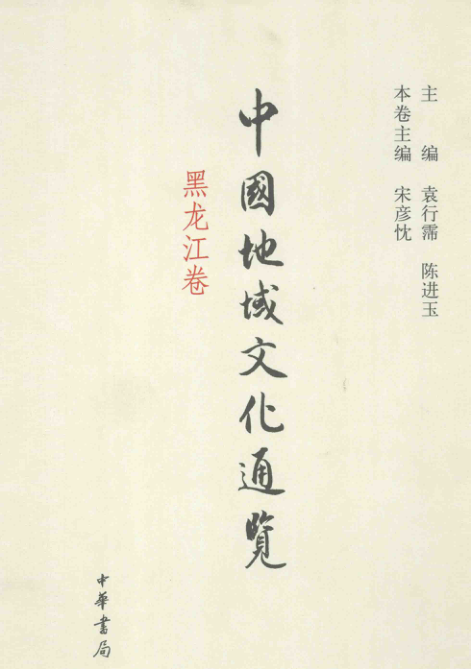 主　编　袁行霈　陈进玉
本卷主编　宋彦忱
中國地域文化通覽
黑龙江卷
中華書局